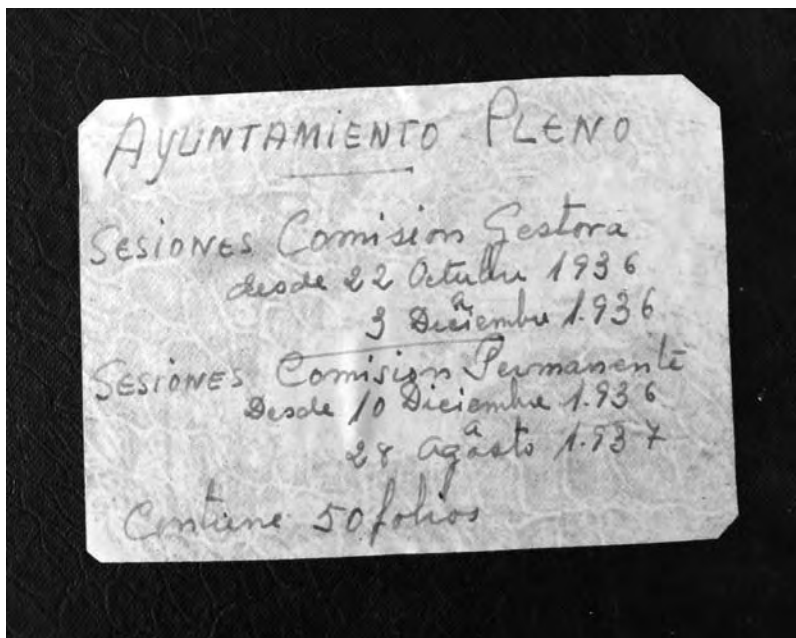 AYUNTAMIENTO PLENO
SESIONES Comision Gestora
desde 22 Octubre 1936
a
3 Diciembre 1.936
SESIONES Comision Permanente
Desde 10 Diciembre 1.936
a
28 Agosto 1.937
Contiene 50 folios